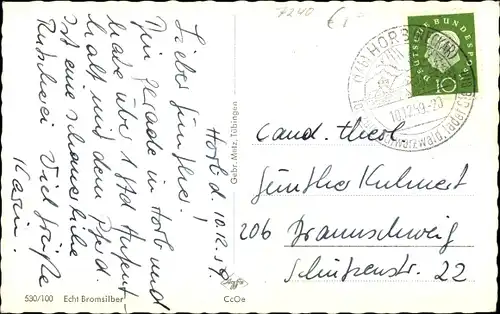 7240
€1
Horb d. 10.12.59.
Lieber Günther!
Bin gerade in Horb und
habe über 1 Std Aufent-
halt mit dem Pferd.
Ist eine schauerliche
Rutscherei Viel Grüße
Karin.
Gebr. Metz, Tübingen
530/100 Echt Bromsilber
CcOe
DEUTSCHE BUNDESPOST
10
HORB
10.12.59.-20
Schwarzwald
Cand. theol.
Günther Kuhnert
206 Braunschweig
Schützenstr. 22